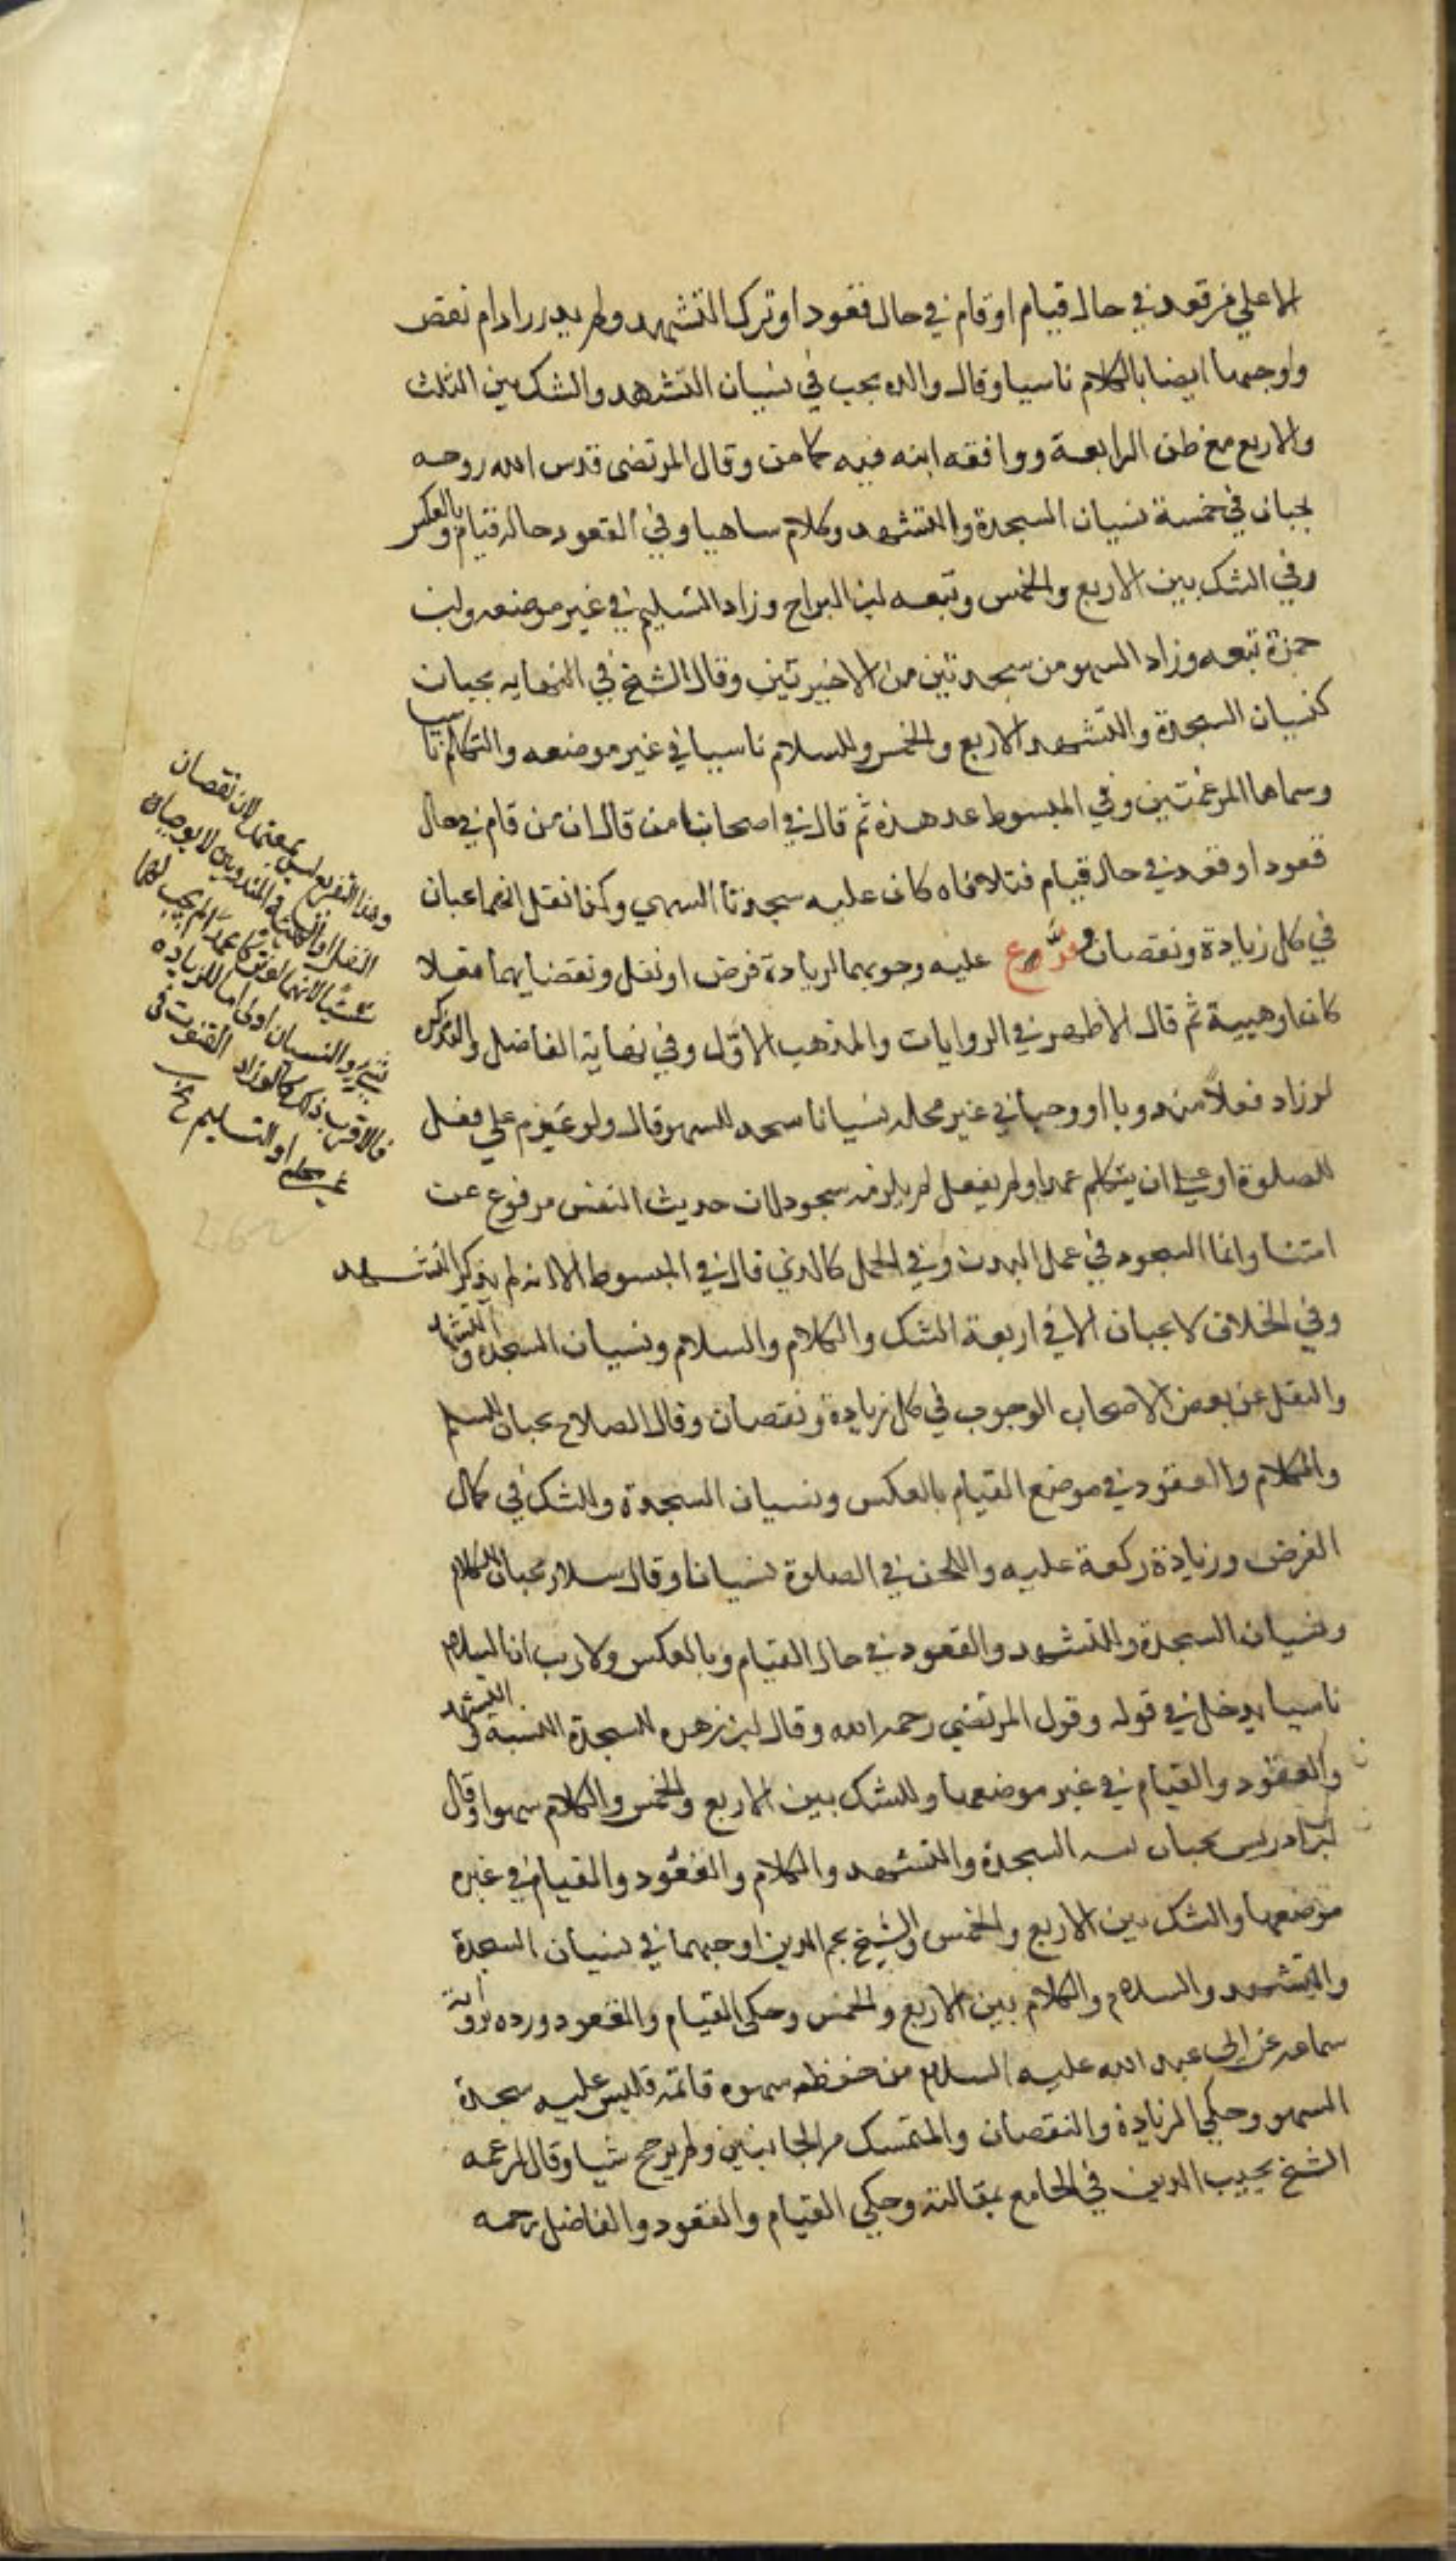 الا علي من قعد في حال قيام او قام في حال قعود او ترك التشهد ولم يدر زاد ام نقص
واوجبهما ايضا بالكلام ناسيا وقال والده يجب في نسيان التشهد والشك بين الثلث
والاربع مع ظن الرابعة ووافقه ابنه فيه كما من وقال المرتضى قدس الله روحه
يجبان في خمسة نسيان السجدة والتشهد وكلام ساهيا وفي القعود حالة قيام وبالعكس
وفي الشك بين الاربع والخمس وتبعه ابن البراج وزاد التسليم في غير موضعه وابن
حمزة تبعه وزاد السهو من سجدتين من الاخيرتين وقال الشيخ في النهايه يجبان
كنسيان السجدة والتشهد الاربع والخمس وللسلام ناسيا في غير موضعه والتكلم ناسيا
وسماها المرغمتين وفي المبسوط عد هذه ثم قال في اصحابنا من قال ان من قام في حال
قعود او قعد في حال قيام فتلافاه كان عليه سجدتا السهو وكذا نقل انهما يجبان
في كل زيادة ونقصان وفرع عليه وجوبهما لزيادة فرض او نفل ونقصانهما فعلا
كانا او هيئة ثم قال الاظهر في الروايات والمذهب الاول وفي نهاية الفاضل والتذكرة
لو زاد فعلا مندوبا او واجبا في غير محله نسيانا سجد للسهو قال ولو عزم علي فعل
للصلوة او على ان يتكلم عمدا ولم يفعل لم يلزمه سجود لان حديث النفس مرفوع عن
امتنا وانما السجود في عمل البدن وفي الجمل كالذي قال في المبسوط الا انه لم يذكر التشهد
وفي الخلاف لا يجبان الا في اربعة الشك والكلام والسلام ونسيان السجدة والتشهد
والنقل عن بعض الاصحاب الوجوب في كل زيادة ونقصان وقال الصلاح يجبان للسلم
والكلام والقعود في موضع القيام بالعكس ونسيان السجدة والشك في كمال
الفرض وزيادة ركعة عليه واللحن في الصلوة نسيانا وقال سلار يجبان للكلام
ونسيان السجدة والتشهد والقعود في حال القيام وبالعكس ولا ريب ان السلام
ناسيا يدخل في قوله وقول المرتضي رحمه الله وقال ابن زهرة للسجدة المنسية والتشهد
والقعود والقيام في غير موضعهما وللشك بين الاربع والخمس والكلام سهوا وقال
ابن ادريس يجبان السجدة والتشهد والكلام والقعود والقيام في غير
موضعهما والشك بين الاربع والخمس والشيخ نجم الدين اوجبهما في نسيان السجدة
والتشهد والسلام والكلام بين الاربع والخمس وحكى القيام والقعود ورده برواية
سماعه عن ابي عبد الله عليه السلام من حفظ سهوه فاتمه فليس عليه سجدة
السهو وحكي الزيادة والنقصان والمتمسك من الجانبين ولم يرجح شيا وقال ابن عمه
الشيخ نجيب الدين في الجامع بمقالته وحكي القيام والقعود والفاضل رحمه
وهذا التفريع ليس بمعتمد لان نقصان
النفل او الهيئة المندوبين لا يوجبان
شيئا لانهما لو تركا عمدا لم يجب لهما
شي والنسيان اولى اما للزياده
فالاقرب ذلك كما لو زاد القنوت في
غير محله او التسليم
262